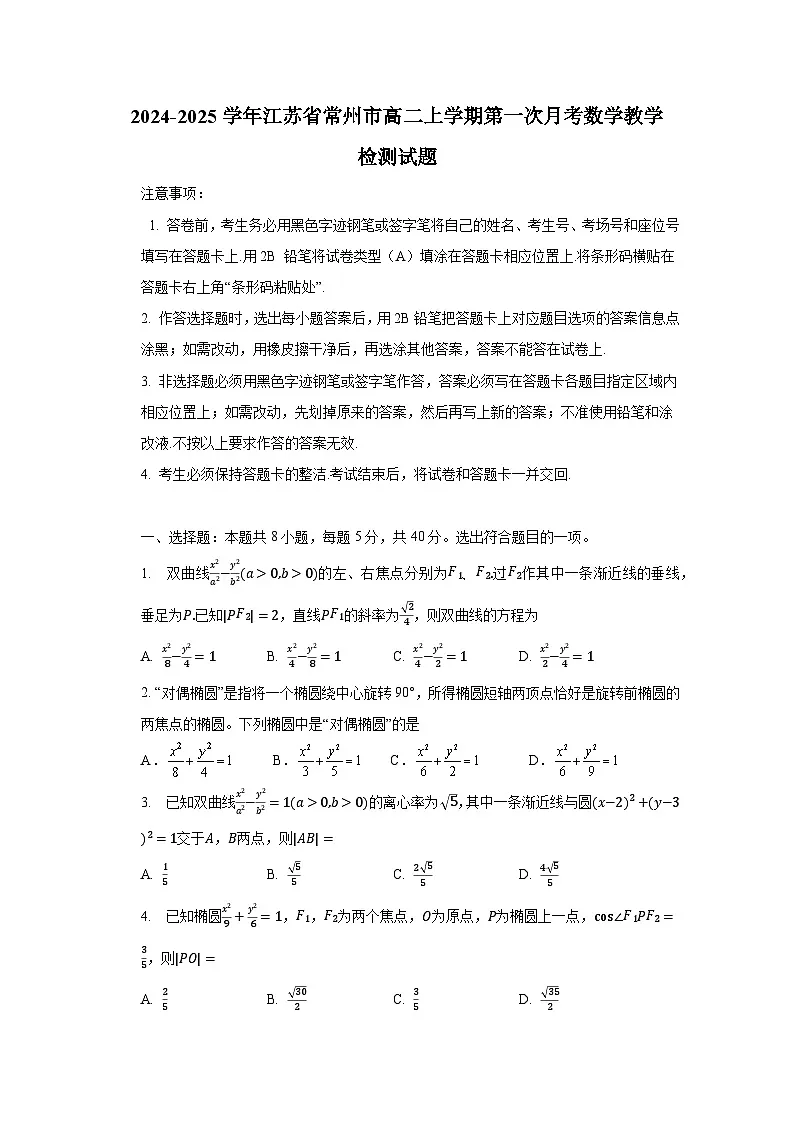 2024-2025 学年江苏省常州市高二上学期第一次月考数学教学
检测试题
注意事项：
1. 答卷前，考生务必用黑色字迹钢笔或签字笔将自己的姓名、考生号、考场号和座位号
填写在答题卡上.用2B 铅笔将试卷类型（A）填涂在答题卡相应位置上.将条形码横贴在
答题卡右上角“条形码粘贴处”.
2. 作答选择题时，选出每小题答案后，用2B铅笔把答题卡上对应题目选项的答案信息点
涂黑；如需改动，用橡皮擦干净后，再选涂其他答案，答案不能答在试卷上.
3. 非选择题必须用黑色字迹钢笔或签字笔作答，答案必须写在答题卡各题目指定区域内
相应位置上；如需改动，先划掉原来的答案，然后再写上新的答案；不准使用铅笔和涂
改液.不按以上要求作答的答案无效.
4. 考生必须保持答题卡的整洁.考试结束后，将试卷和答题卡一并交回.
一、选择题：本题共8小题，每题5分，共40分。选出符合题目的一项。
1. 双曲线x²/a²−y²/b²(a>0,b>0)的左、右焦点分别为F₁、F₂.过F₂作其中一条渐近线的垂线，
垂足为P.已知|PF₂|=2，直线PF₁的斜率为√2/4，则双曲线的方程为
A. x²/8−y²/4=1 B. x²/4−y²/8=1 C. x²/4−y²/2=1 D. x²/2−y²/4=1
2. “对偶椭圆”是指将一个椭圆绕中心旋转90°，所得椭圆短轴两顶点恰好是旋转前椭圆的
两焦点的椭圆。下列椭圆中是“对偶椭圆”的是
A. x²/8+y²/4=1 B. x²/3+y²/5=1 C. x²/6+y²/2=1 D. x²/6+y²/9=1
3. 已知双曲线x²/a²−y²/b²=1(a>0,b>0)的离心率为√5,其中一条渐近线与圆(x−2)²+(y−3
)²=1交于A，B两点，则|AB|=
A. 1/5 B. √5/5 C. 2√5/5 D. 4√5/5
4. 已知椭圆x²/9+y²/6=1，F₁，F₂为两个焦点，O为原点，P为椭圆上一点，cos∠F₁PF₂=
3/5，则|PO|=
A. 2/5 B. √30/2 C. 3/5 D. √35/2